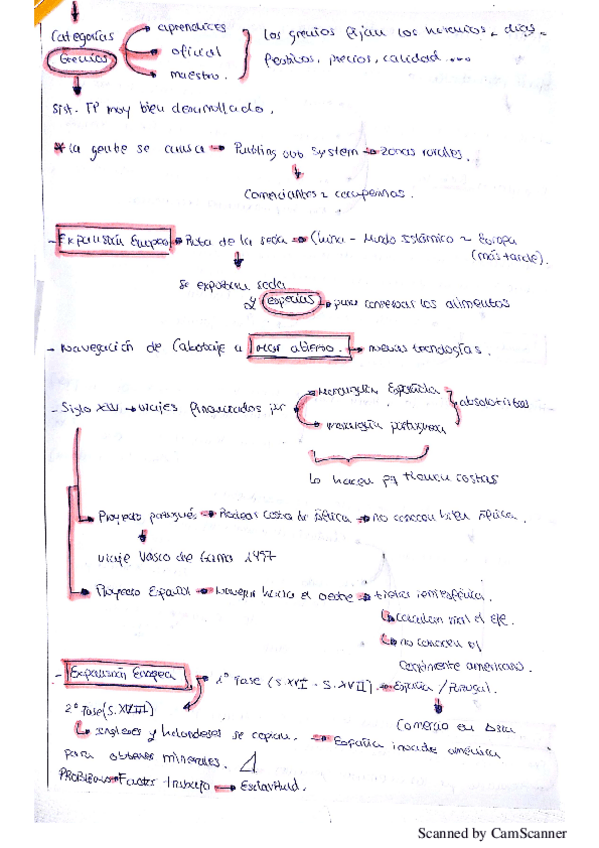 Categorías → aprendices
Gremios → oficial
→ maestro.
los gremios fijan los horarios, días
festivos, precios, calidad....
Sist. TP muy bien desarrollado.
* la gente se cansa → Putting out System → zonas rurales.
Comerciantes campesinos.
- Expansión Europea → Ruta de la seda → China - Mundo Islámico - Europa
(más tarde).
Se exportan seda
y especias → para conservar los alimentos
- Navegación de Cabotaje a mar abierto. → nuevas tecnologías.
- Siglo → viajes financiados por
→ Monarquía Española
→ monarquía portuguesa
absolutistas
Lo hacen pq tienen costas
→ Proyecto portugués → Rodear costa de África → no conocen bien África.
viaje Vasco de Gama 1497
→ Proyecto Español → Navegar hacia el oeste → tierra
→ calculan mal el eje.
→ no conocen el
continente americano.
- Expansión Europea → 1ª Fase (S.XVI - S.XVII) → España / Portugal.
2ª Fase (S.XVIII)
Comercio en Asia
→ Ingleses y holandeses se copian. → España invade américa
para obtener minerales.
PROBLEMA → Factor trabajo → Esclavitud.
Scanned by CamScanner